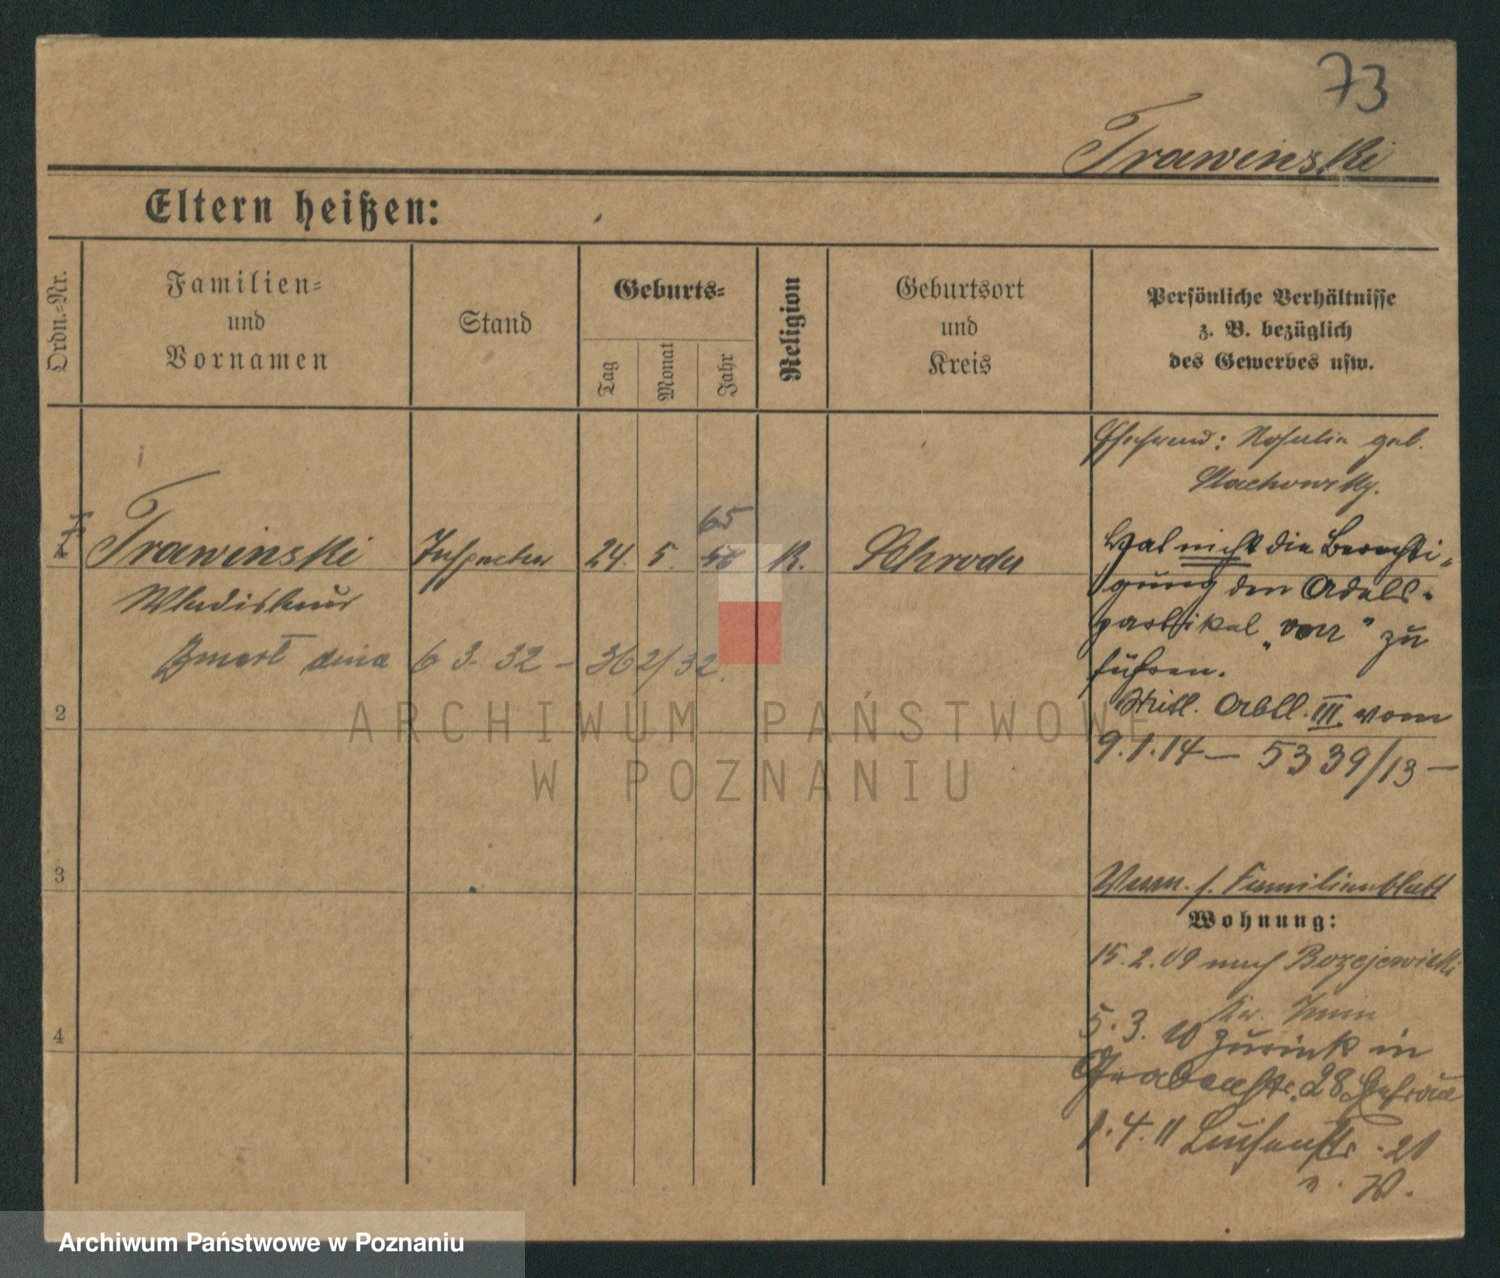 73
Trawinski
Eltern heißen:
Ordn.-Nr.
Familien-
und
Vornamen
Stand
Geburts-
Tag
Monat
Jahr
Religion
Geburtsort
und
Kreis
Persönliche Verhältnisse
z. B. bezüglich
des Gewerbes usw.
Ehefrau: geb.
1
Trawinski
Wladislaus
Inspector
24. 5. 65
K.
Schroda
Zmarł dnia 6 3. 32 - 362/32
Hat nicht die Berechti-
gung den Adels-
partikel „von" zu
führen.
Mitt. Abtl. III vom
9.1.14 — 5339/13 —
2
3
4
Verm. s. Familienblatt
Wohnung:
15.2.09 nach
Kr. Znin
5. 3. 10 zurück in
Grabenstr. 28
1. 4. 11 Luisenstr. 21
ARCHIWUM PAŃSTWOWE
W POZNANIU
Archiwum Państwowe w Poznaniu